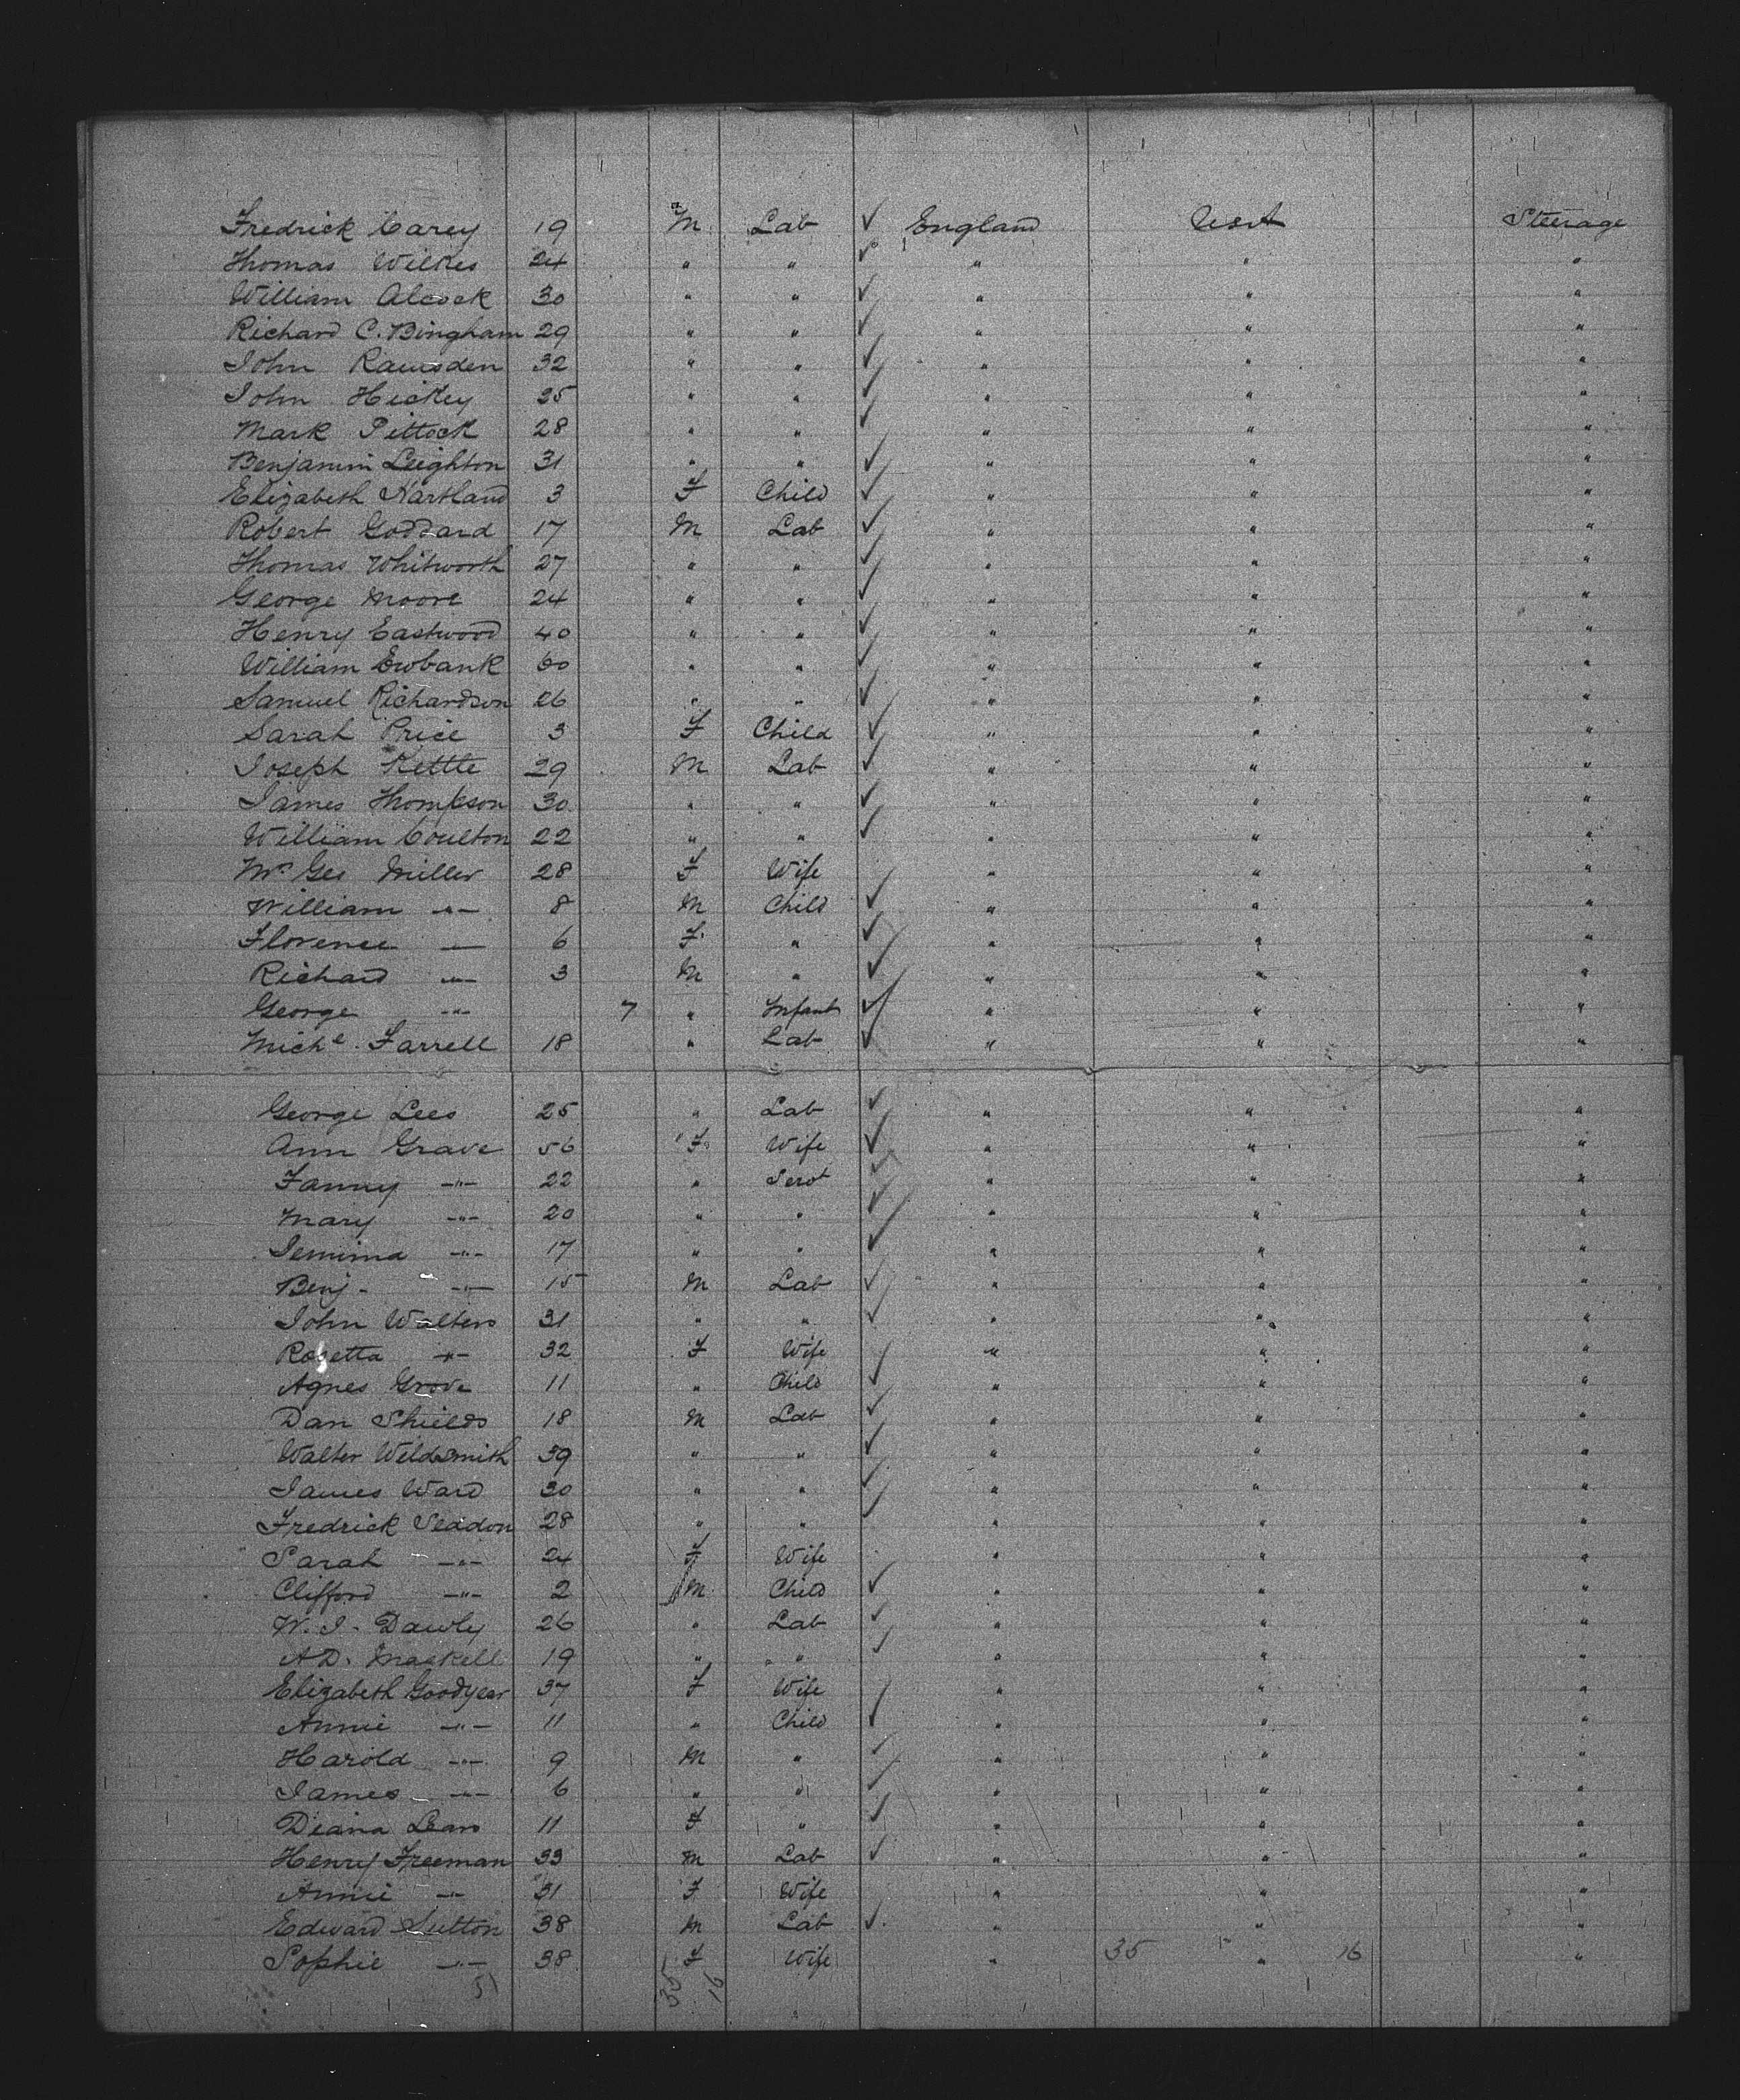 Fredrick Carey 19 M Lab ✓ England USA Steerage
Thomas Wilkes 24 " " ✓ " " "
William Alcock 30 " " ✓ " " "
Richard C. Bingham 29 " " ✓ " " "
John Ramsden 32 " " ✓ " " "
John Hickey 25 " " ✓ " " "
Mark Pittock 28 " " ✓ " " "
Benjamin Leighton 31 " " ✓ " " "
Elizabeth Hartland 3 F Child ✓ " " "
Robert Goddard 17 M Lab ✓ " " "
Thomas Whitworth 27 " " ✓ " " "
George Moore 24 " " ✓ " " "
Henry Eastwood 40 " " ✓ " " "
William Ewbank 60 " " ✓ " " "
Samuel Richardson 26 " " ✓ " " "
Sarah Price 3 F Child ✓ " " "
Joseph Kettle 29 M Lab ✓ " " "
James Thompson 30 " " ✓ " " "
William Coulton 22 " " ✓ " " "
Mrs Geo Miller 28 F Wife " " "
William -"- 8 M Child ✓ " " "
Florence — 6 F " ✓ " " "
Richard -"- 3 M " ✓ " " "
George -"- 7 " Infant ✓ " " "
Michl. Farrell 18 " Lab ✓ " " "
George Lees 25 " Lab ✓ " " "
Ann Grave 56 F Wife ✓ " " "
Fanny -"- 22 " Servt ✓ " " "
Mary -"- 20 " " ✓ " " "
Jemima -"- 17 " " ✓ " " "
Benj - -"- 15 M Lab ✓ " " "
John Walters 31 " " ✓ " " "
Rosetta -"- 32 F Wife " " "
Agnes Grove 11 " Child ✓ " " "
Dan Shields 18 M Lab ✓ " " "
Walter Weldsmith 39 " " ✓ " " "
James Ward 30 " " ✓ " " "
Fredrick Seddon 28 " " ✓ " " "
Sarah -"- 24 F Wife " " "
Clifford -"- 2 M Child ✓ " " "
W. J. Dawly 26 " Lab ✓ " " "
A D. Maskell 19 " " ✓ " " "
Elizabeth Goodyear 37 F Wife " " "
Annie -"- 11 " Child ✓ " " "
Harold -"- 9 M " ✓ " " "
James -"- 6 " " ✓ " " "
Diana 11 F " ✓ " " "
Henry Freeman 33 M Lab ✓ " " "
Annie -"- 31 F Wife " " "
Edward Sutton 38 M Lab ✓ " " "
Sophie -"- 38 F Wife " 35 " 16 "
51 35 16